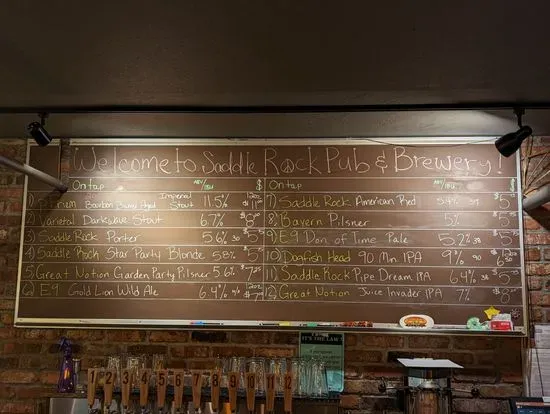 Welcome to Saddle Rock Pub & Brewery!
On tap ABV/IBU $
Bourbon Barrel Aged Imperial Stout 11.5% 12oz
2) Varietal Darkwave Stout 6.7%
3) Saddle Rock Porter 5.6% 30
4) Saddle Rock Star Party Blonde 5.8%
5) Great Notion Garden Party Pilsner 5.6%
6) E9 Gold Lion Wild Ale 6.4% 12oz
On tap ABV/IBU $
7) Saddle Rock American Red 5.4%
8) Bayern Pilsner 5%
9) E9 Don of Time Pale 5.2%
10) Dogfish Head 90 Min. IPA 9% 90
11) Saddle Rock Pipe Dream IPA 6.4%
12) Great Notion Juice Invader IPA 7%
IT'S THE LAW
1 2 3 4 5 6 7 8 9 10 11 12